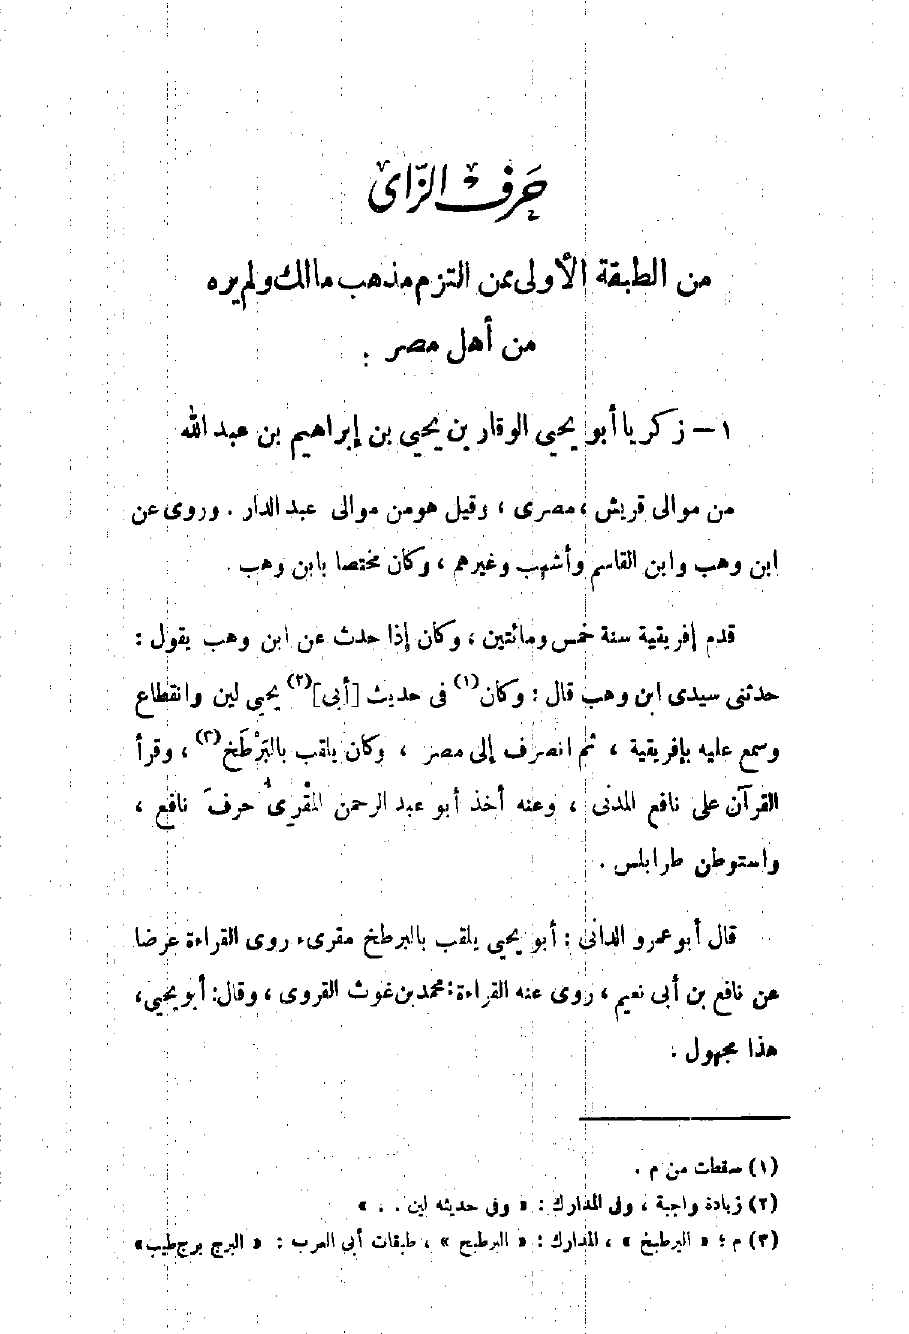 حَرف الزّاى
من الطبقة الأولى ممن التزم مذهب مالك ولم يره
من أهل مصر :
١ – زكريا أبو يحيى الوقار بن يحيى بن إبراهيم بن عبد الله
من موالى قريش ، مصرى ، وقيل هو من موالى عبد الدار . وروى عن
ابن وهب وابن القاسم وأشهب وغيرهم ، وكان مختصا بابن وهب .
قدم إفريقية سنة خمس ومائتين ، وكان إذا حدث عن ابن وهب يقول :
حدثنى سيدى ابن وهب قال : وكان(١) فى حديث [أبى](٢) يحيى لين وانقطاع
وسمع عليه بإفريقية ، ثم انصرف إلى مصر ، وكان يلقب بالبَرْطَخ(٣) ، وقرأ
القرآن على نافع المدنى ، وعنه أخذ أبو عبد الرحمن المقْرِىُ حرفَ نافع ،
واستوطن طرابلس .
قال أبو عمرو الدانى : أبو يحيى يلقب بالبرطخ مقرىء روى القراءة عرضا
عن نافع بن أبى نعيم ، روى عنه القراءة : محمد بن غوث القروى ، وقال : أبو يحيى ،
هذا مجهول .
(١) سقطت من م .
(٢) زيادة واجبة ، وفى المدارك : « وفى حديثه لين . . »
(٣) م ؛ « البرطبخ » ، المدارك : « البرطيح » ، طبقات أبى العرب : « البرج برج طيب »